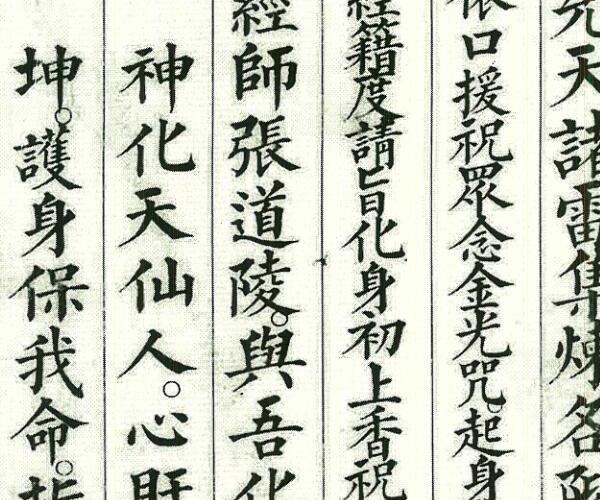 天諸雷集煉名
口援祝眾念金光咒。起身
經籍度請旨化身初上香祝
經師張道陵。與吾化
神化天仙人。心肝
坤。護身保我命。